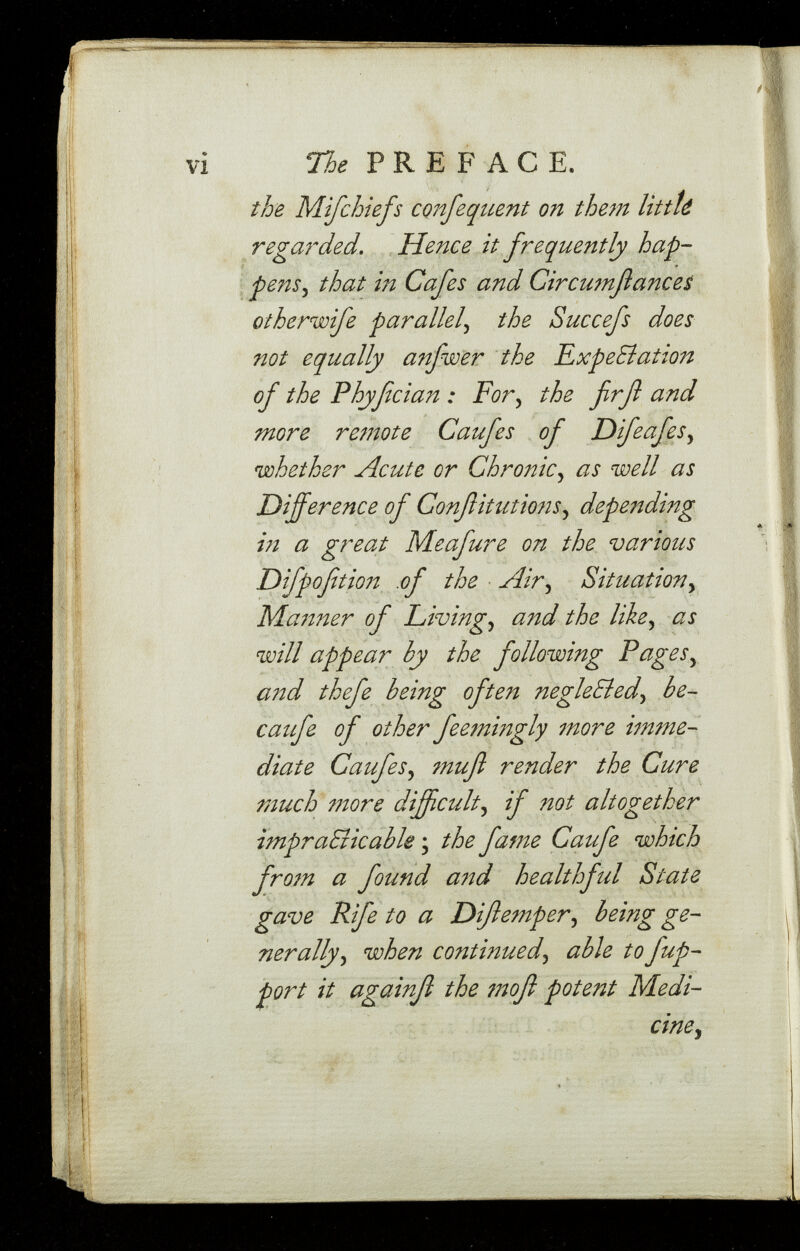 vi The PREFACE.
the Miſchiefs conſequent on them little
regarded. Hence it frequently hap-
pens, that in Caſes and Circumſtances
otherwiſe parallel, the Succeſs does
not equally anſwer the Expectation
of the Phyſician : For, the firſt and
more remote Cauſes of Diſeaſes,
whether Acute or Chronic, as well as
Difference of Conſtitutions, depending
in a great Meaſure on the various
Diſpoſition of the Air, Situation,
Manner of Living, and the like, as
will appear by the following Pages,
and theſe being often neglected, be-
cauſe of other ſeemingly more imme-
diate Cauſes, muſt render the Cure
much more difficult, if not altogether
impracticable ; the ſame Cauſe which
from a ſound and healthful State
gave Riſe to a Diſtemper, being ge-
nerally, when continued, able to ſup-
port it againſt the moſt potent Medi-
cine,